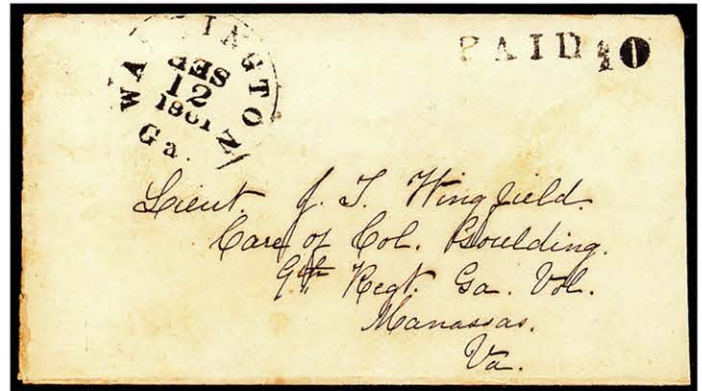 WASHINGTON
SEP
12
1861
Ga.
PAID 10
Lieut. J. T. Wingfield.
Care of Col. Goulding.
9th Regt. Ga. Vol.
Manassas.
Va.